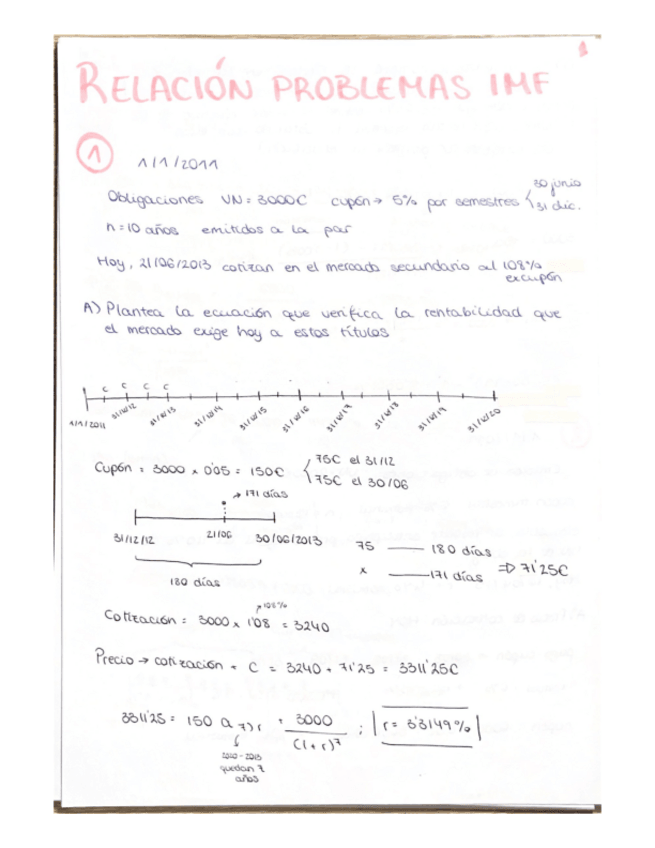 1
RELACIÓN PROBLEMAS IMF
1 1/1/2011
Obligaciones VN = 3000€ cupón → 5% por semestres { 30 junio
31 dic.
n = 10 años emitidos a la par
Hoy, 21/06/2013 cotizan en el mercado secundario al 108%
excupón
A) Plantea la ecuación que verifica la rentabilidad que
el mercado exige hoy a estos títulos
C C C C
1/1/2011 31/12/12 31/12/13 31/12/14 31/12/15 31/12/16 31/12/17 31/12/18 31/12/19 31/12/20
Cupón = 3000 x 0'05 = 150€ { 75€ el 31/12
75€ el 30/06
→ 171 días
31/12/12 21/06 30/06/2013
180 días
75 —— 180 días
x —— 171 días ⇒ 71'25€
108%
Cotización = 3000 x 1'08 = 3240
Precio → cotización + C = 3240 + 71'25 = 3311'25€
3311'25 = 150 a 7⌉r + 3000 / (1+r)^7 ; r = 3'3149%
2020 - 2013
quedan 7
años